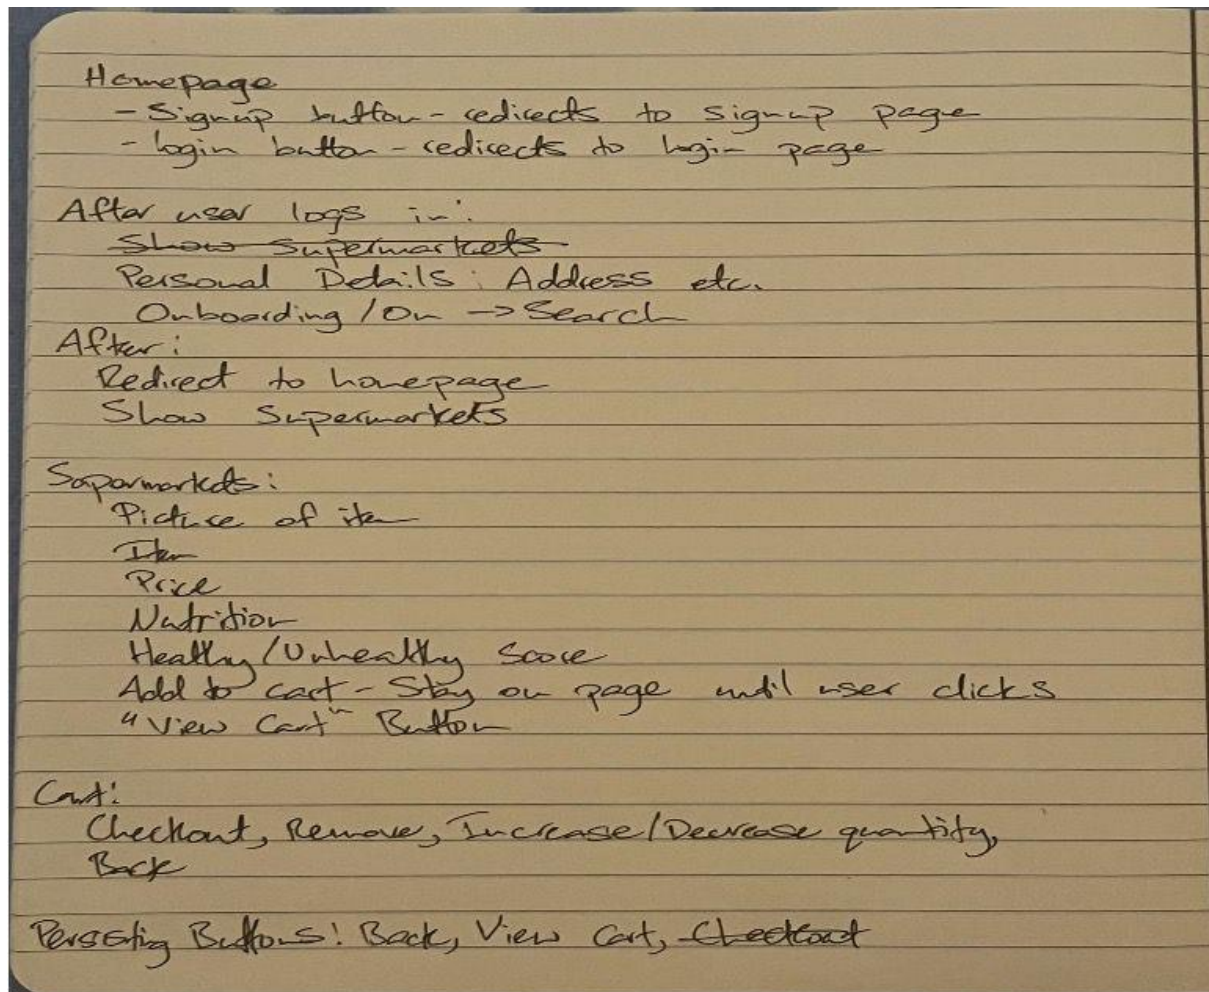 Homepage
- Signup button - redirects to signup page
- login button - redirects to login page
After user logs in:
Show Supermarkets
Personal Details: Address etc.
Onboarding / On -> Search
After:
Redirect to homepage
Show Supermarkets
Supermarkets:
Picture of item
Item
Price
Nutrition
Healthy/Unhealthy Score
Add to cart - Stay on page until user clicks
"View Cart" Button
Cart:
Checkout, Remove, Increase/Decrease quantity,
Back
Persisting Buttons: Back, View Cart, Checkout